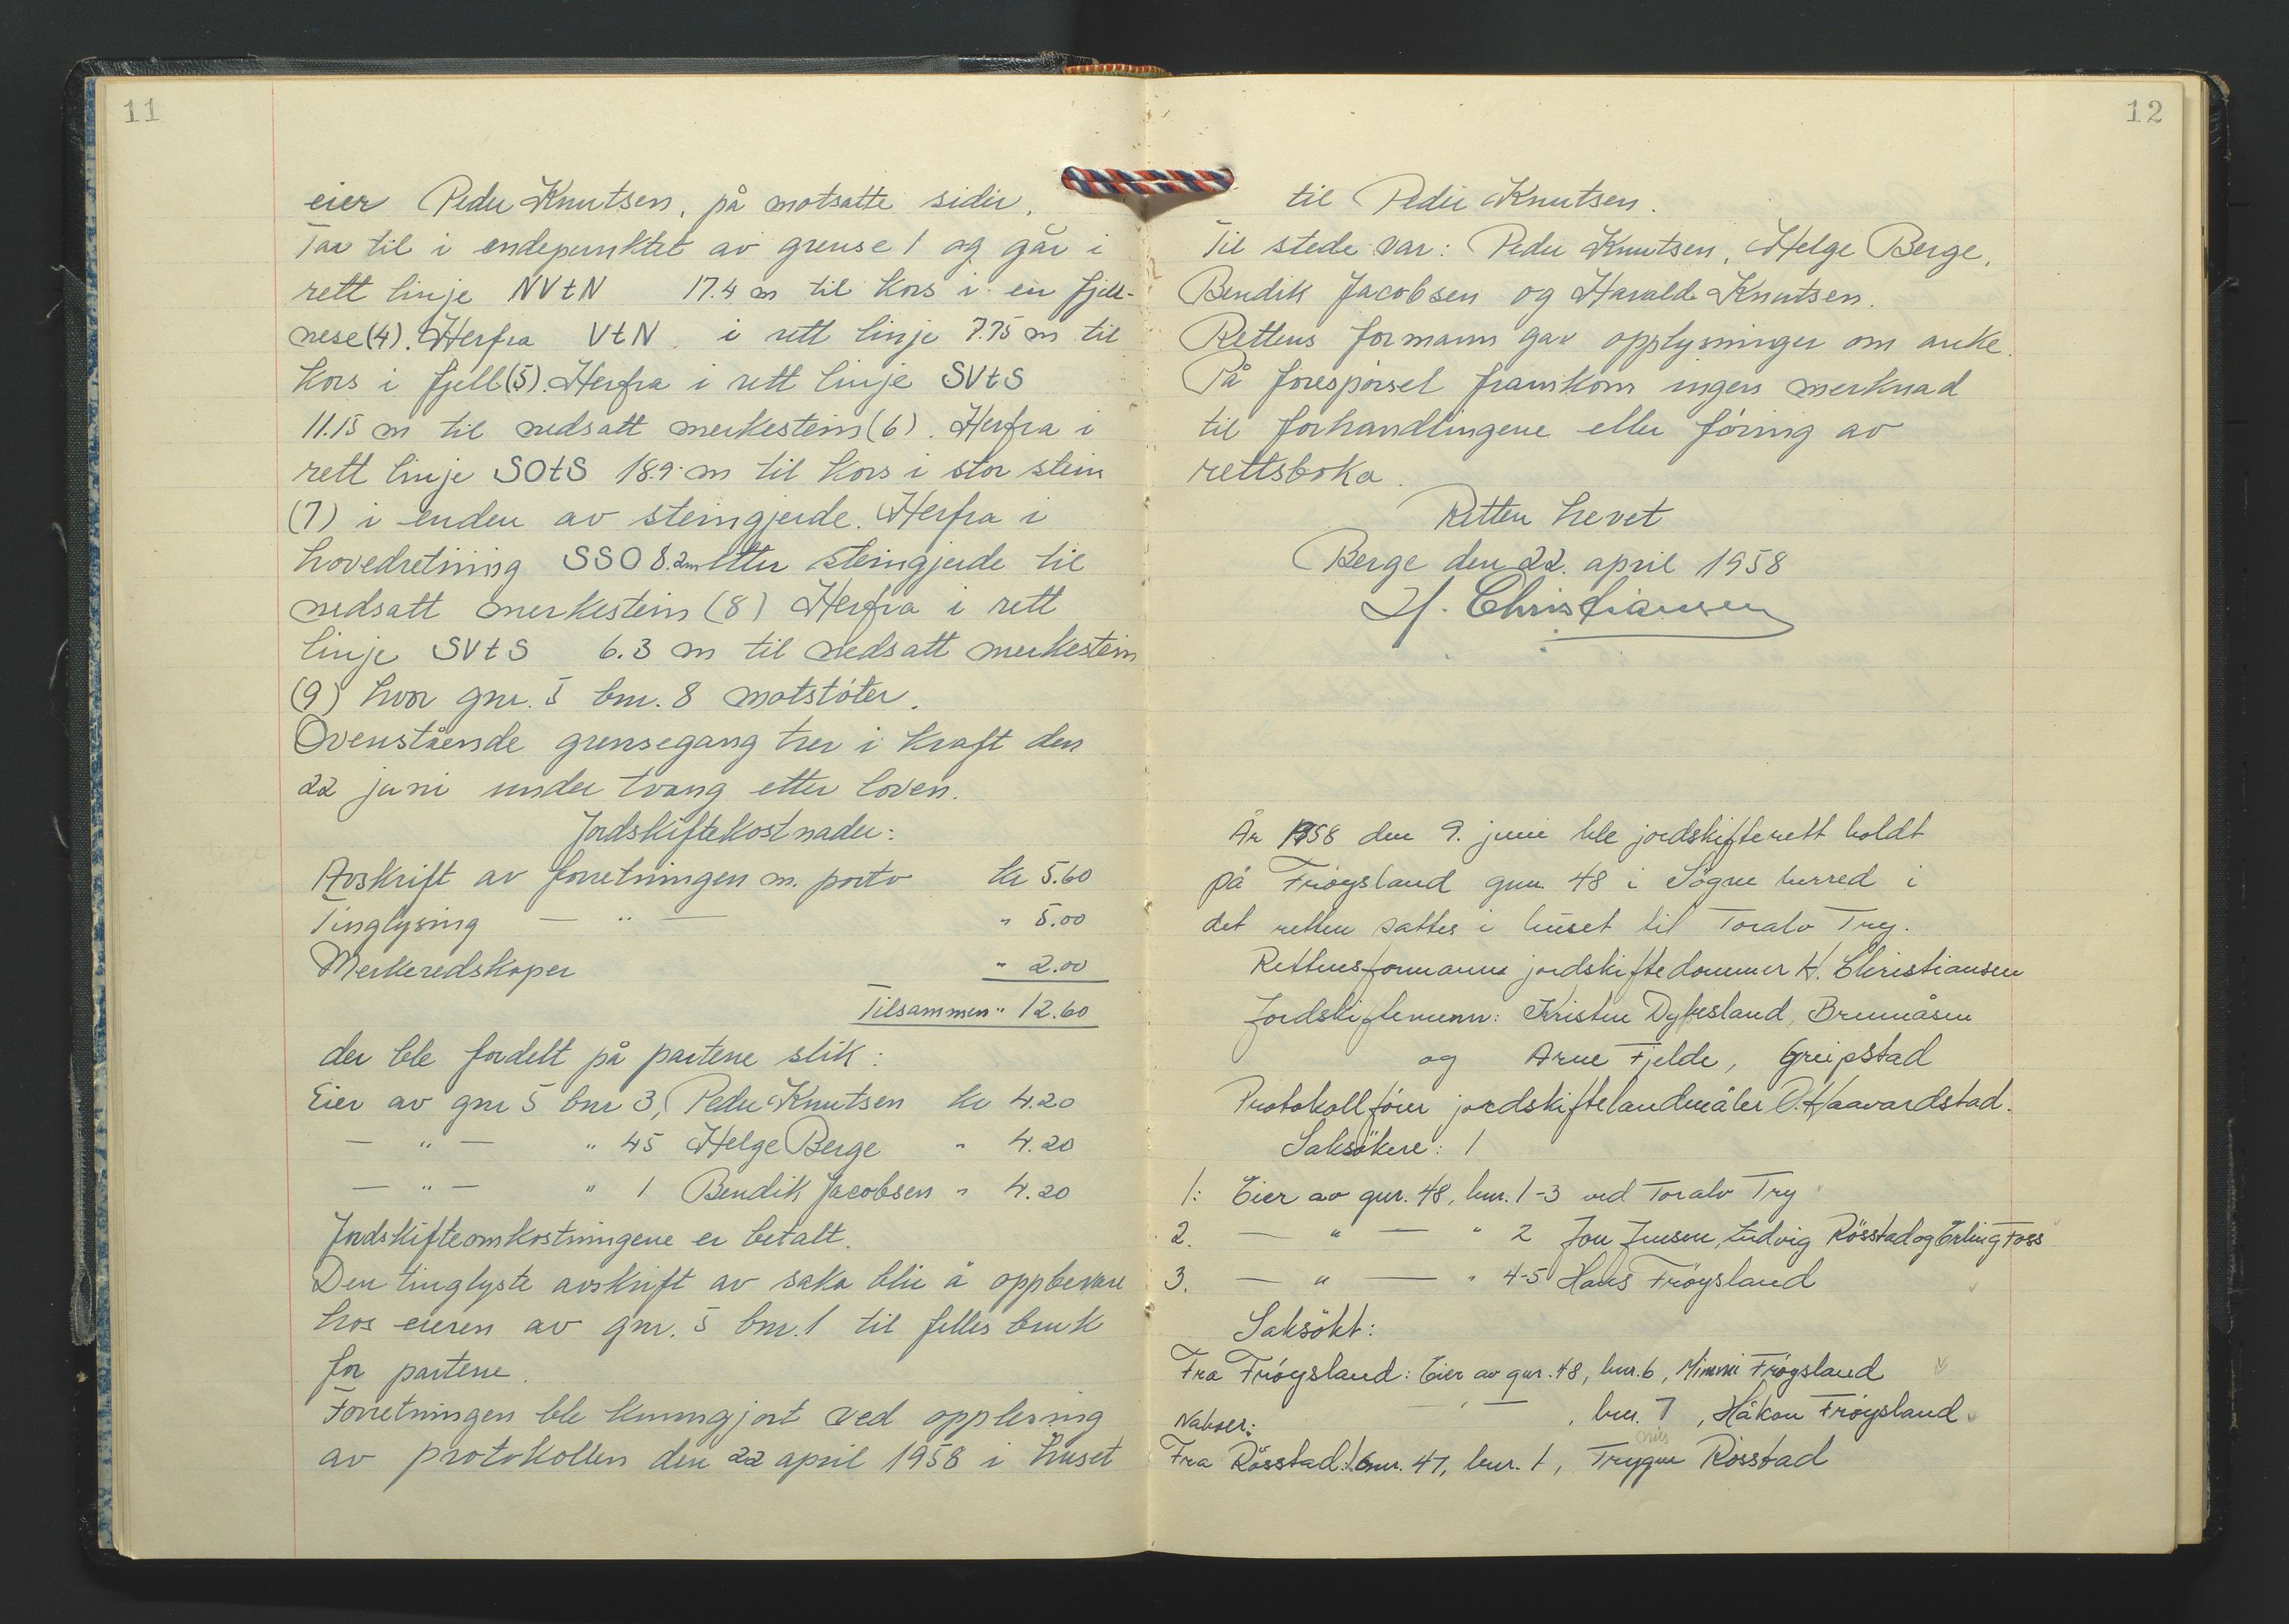 11
eier Peder Knutsen, på motsatte sider.
Tar til i endepunktet av grense 1 og går i
rett linje NVtN 17.4 m til kors i en fjell-
nese (4). Herfra VtN i rett linje 7.75 m til
kors i fjell (5). Herfra i rett linje SVtS
11.15 m til nedsatt merkestein (6). Herfra i
rett linje SOtS 18.9 m til kors i stor stein
(7) i enden av steingjerde. Herfra i
hovedretning SSO 8.2m etter steingjerde til
nedsatt merkestein (8) Herfra i rett
linje SVtS 6.3 m til nedsatt merkestein
(9) hvor gnr. 5 bnr. 8 motstöter.
Ovenstående grensegang trer i kraft den
22 juni under tvang etter loven.
Jordskiftekostnader:
Avskrift av forretningen m. porto kr 5.60
Tinglysing — " — " 5.00
Merkeredskaper " 2.00
Tilsammen " 12.60
der ble fordelt på partene slik:
Eier av gnr 5 bnr 3, Peder Knutsen kr 4.20
— " — " 45 Helge Berge " 4.20
— " — " 1 Bendik Jacobsen " 4.20
Jordskifteomkostningene er betalt.
Den tinglyste avskrift av saka blir å oppbevare
hos eieren av gnr. 5 bnr. 1 til felles bruk
for partene.
Forretningen ble kunngjort ved opplesing
av protokollen den 22 april 1958 i huset
12
til Peder Knutsen.
Til stede var: Peder Knutsen, Helge Berge,
Bendik Jacobsen og Harald Knutsen.
Rettens formann gav opplysninger om anke.
På forespörsel framkom ingen merknad
til forhandlingene eller föring av
rettsboka.
Retten hevet
Berge den 22. april 1958
H. Christiansen
År 1958 den 9. juni ble jordskifterett holdt
på Fröysland gnr. 48 i Sögne herred i
det retten sattes i huset til Toralv Try.
Rettensformann jordskiftedommer H. Christiansen
Jordskiftemenn: Kristen Dybesland, Brennåsen
og Arne Fjelde, Greipstad
Protokollförer jordskiftelandmåler O. Haavardstad.
Saksökere: 1
1: Eier av gnr. 48, bnr. 1-3 ved Toralv Try
2. — " — " 2 Jon Jensen, Ludvig Rösstad og Erling Foss
3. — " — " 4-5 Hans Fröysland
Saksökt:
Fra Fröysland: Eier av gnr. 48, bnr. 6, Mimmi Fröysland
— " — , bnr. 7, Håkon Fröysland
Naboer:
nils
Fra Rösstad: Gnr. 47, bnr. 1, Trygve Rösstad